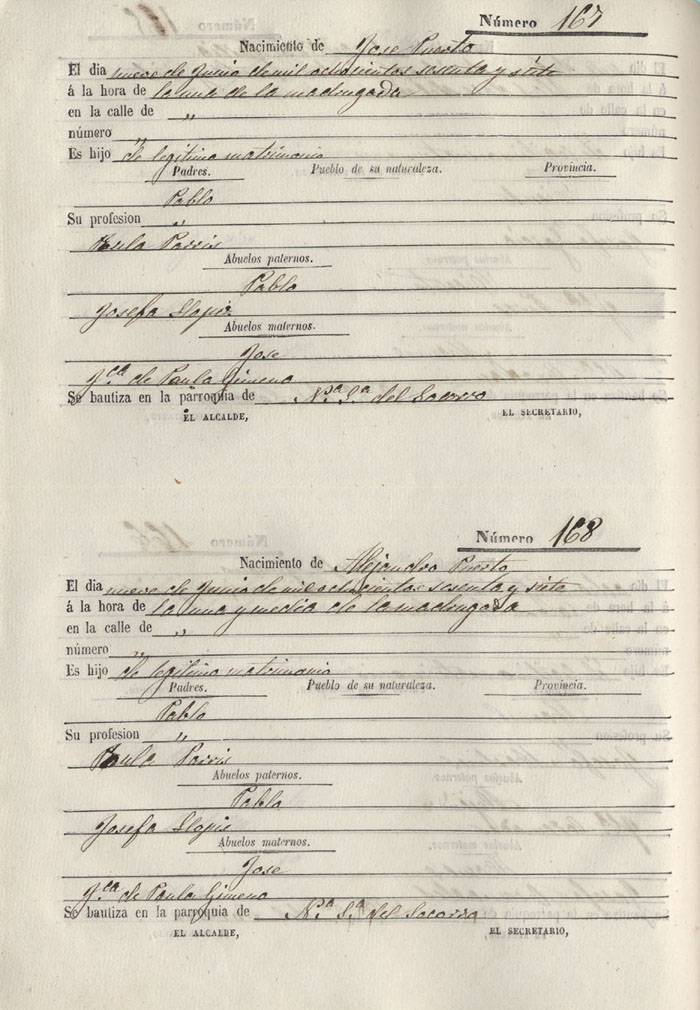 Número 167
Nacimiento de Jose Puerto
El dia nueve de Junio de mil ochocientos sesenta y siete
á la hora de la una de la madrugada
en la calle de „
número „
Es hijo de legitimo matrimonio
Padres. Pueblo de su naturaleza. Provincia.
Pablo
Su profesion „
Paula Parris
Abuelos paternos.
Pablo
Josefa Llopis
Abuelos maternos.
Jose
Fca de Paula Gimeno
Se bautiza en la parroquia de Na Sa del Socorro
EL ALCALDE, EL SECRETARIO,
Número 168
Nacimiento de Alejandro Puerto
El dia nueve de Junio de mil ochocientos sesenta y siete
á la hora de la una y media de la madrugada
en la calle de „
número „
Es hijo de legitimo matrimonio
Padres. Pueblo de su naturaleza. Provincia.
Pablo
Su profesion „
Paula Parris
Abuelos paternos.
Pablo
Josefa Llopis
Abuelos maternos.
Jose
Fca de Paula Gimeno
Se bautiza en la parroquia de Na Sa del Socorro
EL ALCALDE, EL SECRETARIO,